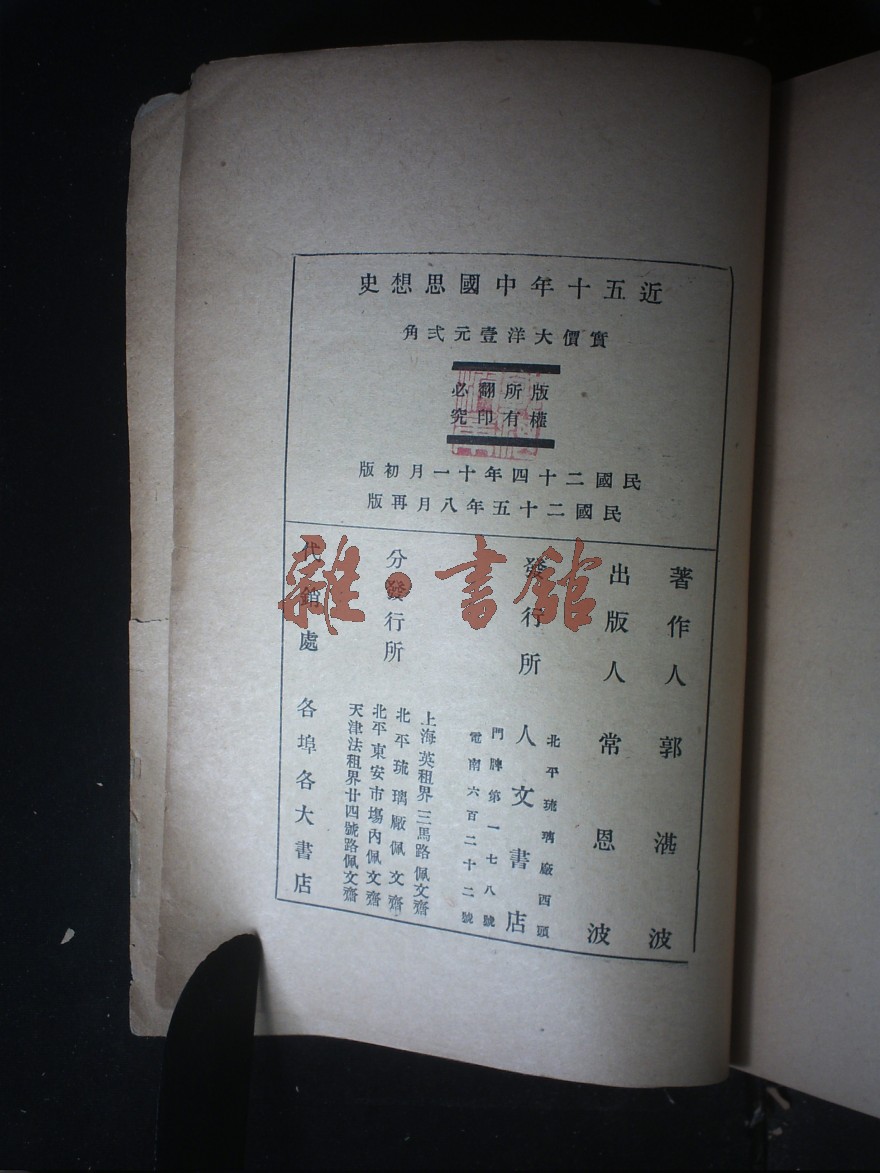 近五十年中國思想史
實價大洋壹元弍角
版權所有翻印必究
民國二十四年十一月初版
民國二十五年八月再版
著作人 郭湛波
出版人 常恩波
發行所 人文書店
北平琉璃廠西頭
門牌第一七八號
電南六百二十二號
分發行所
上海英租界三馬路佩文齋
北平琉璃廠佩文齋
北平東安市場內佩文齋
天津法租界廿四號路佩文齋
代銷處 各埠各大書店
雜·書館